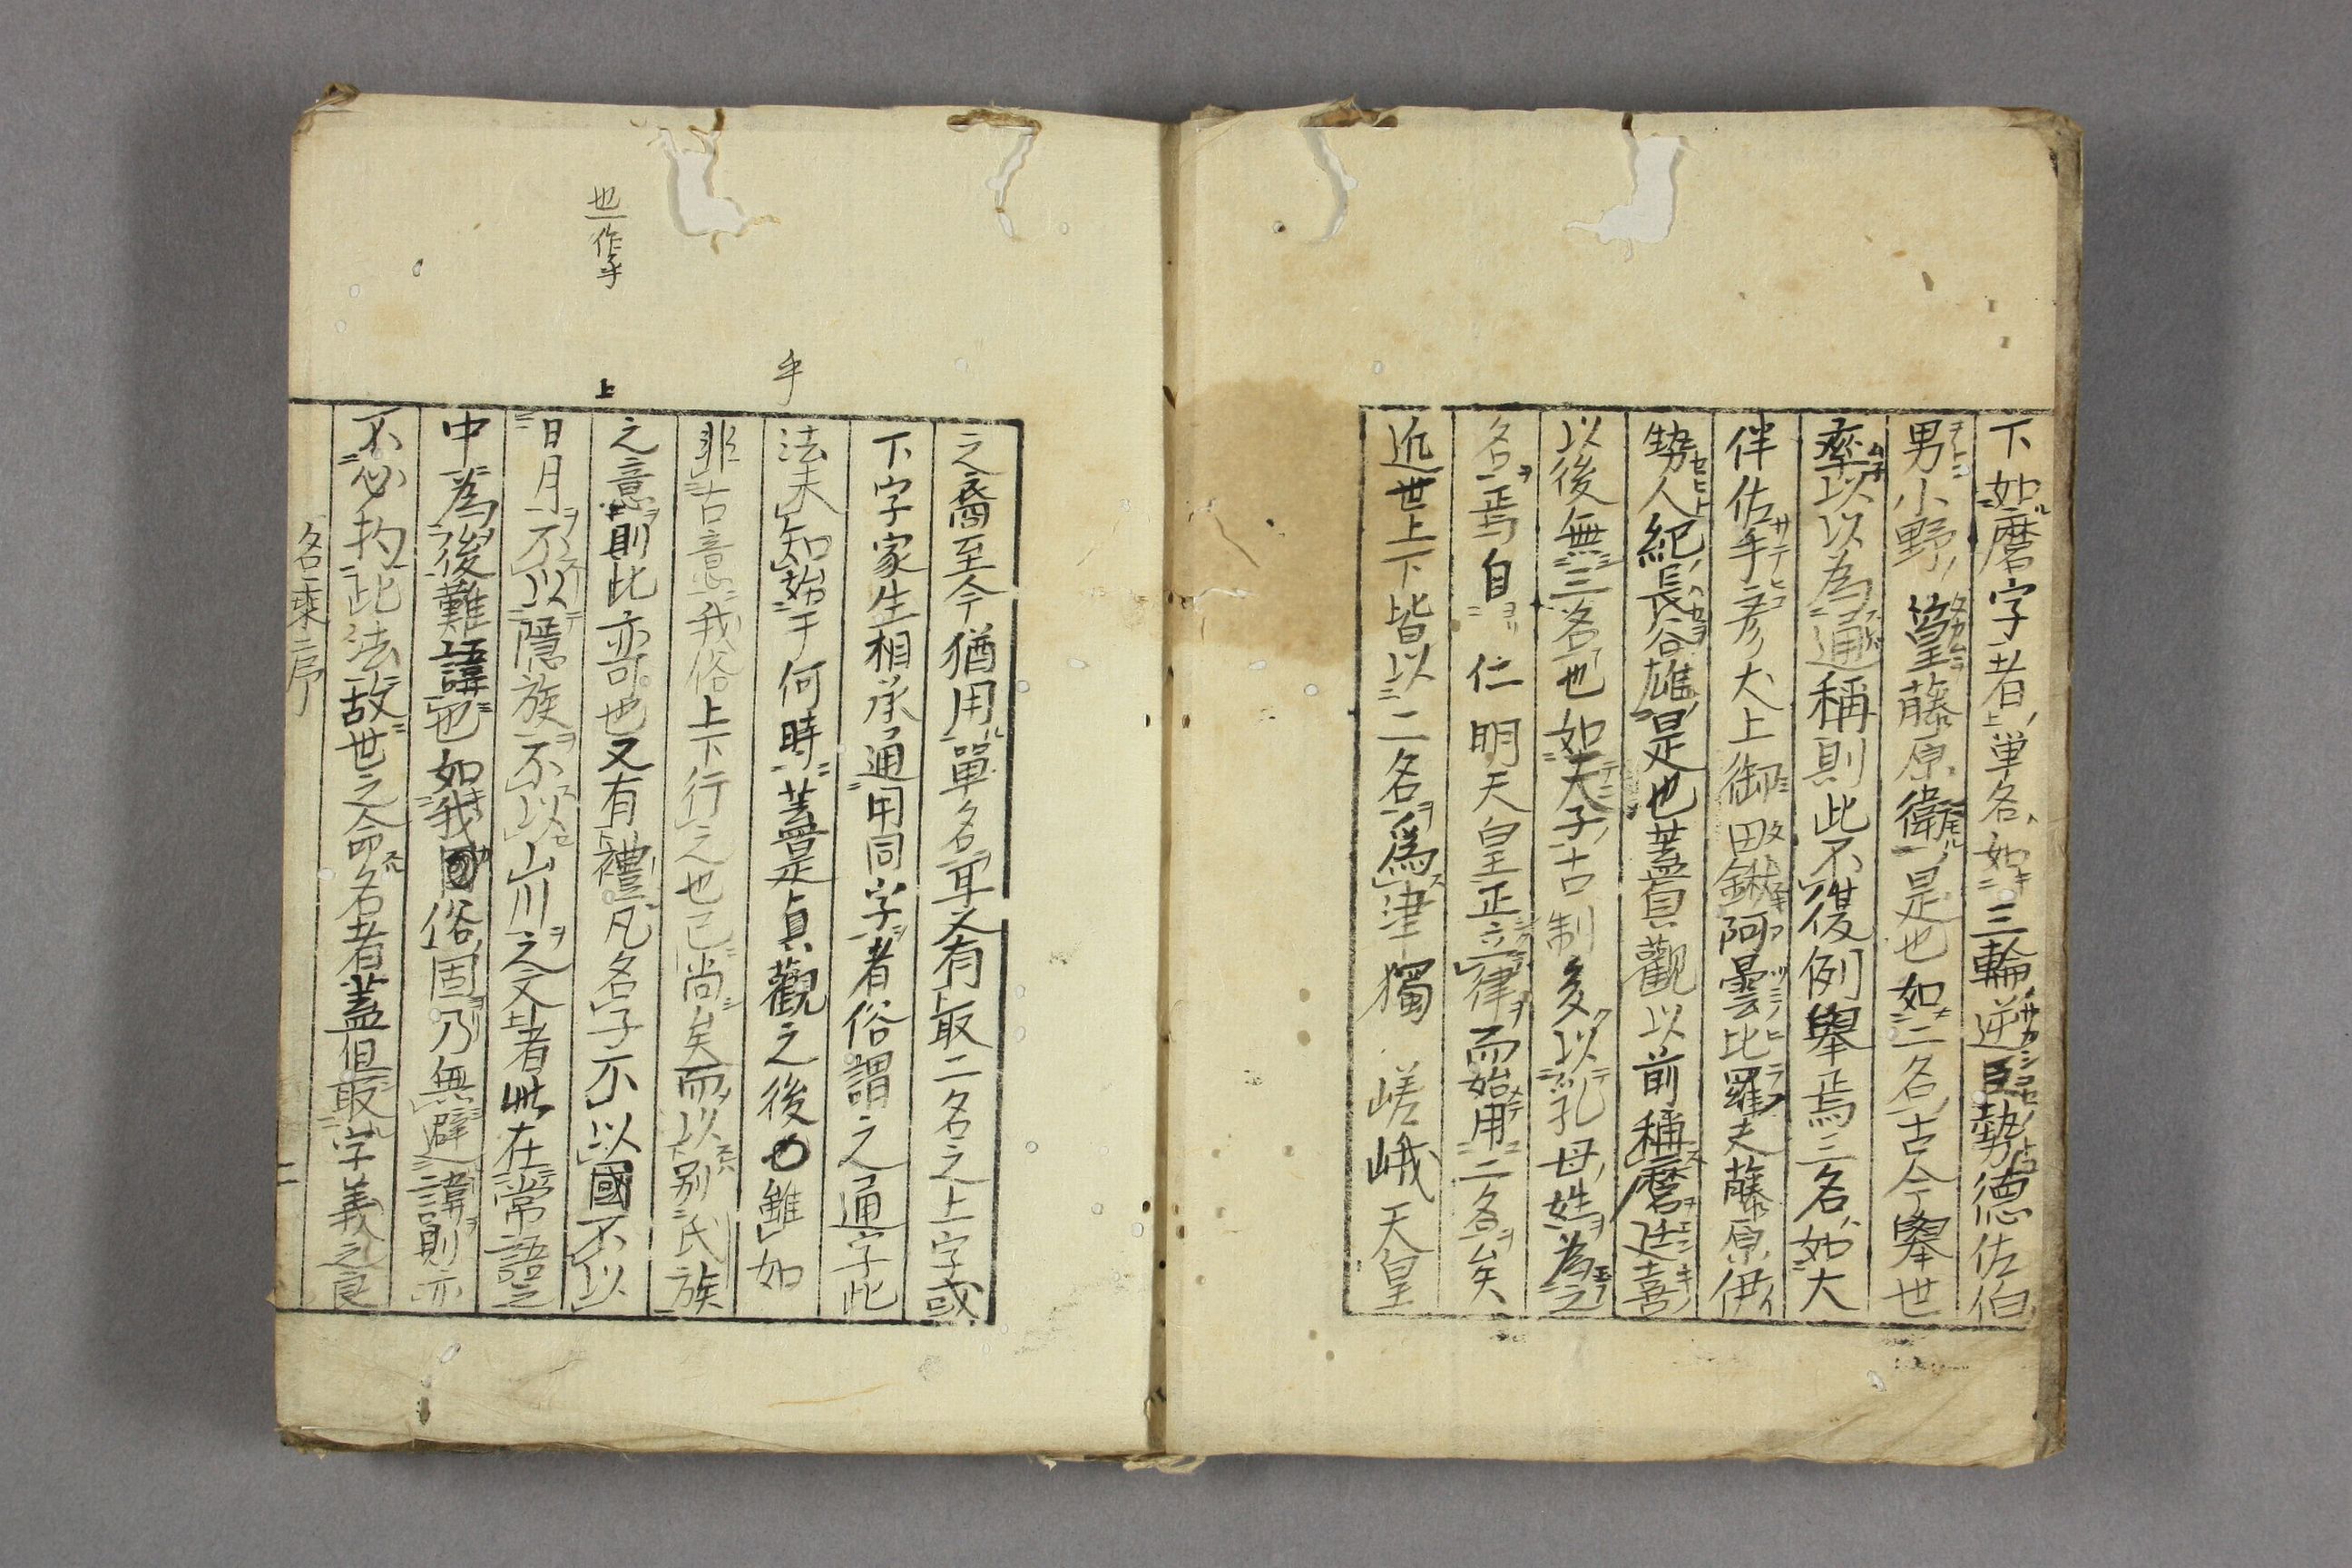 下如麿字者単名如三輪逆巨勢徳佐伯
男小野篁藤原衛是也如二名古今舉世
率以以為通稱則此不復例舉焉三名如大
伴佐手彦犬上御田鍬阿曇比羅夫藤原伊
勢人紀長谷雄是也蓋貞觀以前稱麿延喜
以後無三名也如天子古制多以乳母姓為之
名焉自仁明天皇正立律而始用二名矣
近世上下皆以二名為津獨嵯峨天皇
之裔至今猶用單名耳又有取二名之上字或
下字家生相承通用同字者俗謂之通字此
法未知始于何時蓋是貞觀之後也雖如
非古意我俗上下行之也已尚矣而以別氏族
之意則此亦可也又有禮凡名子不以國不以
日月不以隠族不以山川之文者此在常語之
中為後難諱也如我俗固乃無避諱則亦
不必拘此法故世之命名者蓋但取字義之良
名乗序
二
手
上
也一作乎